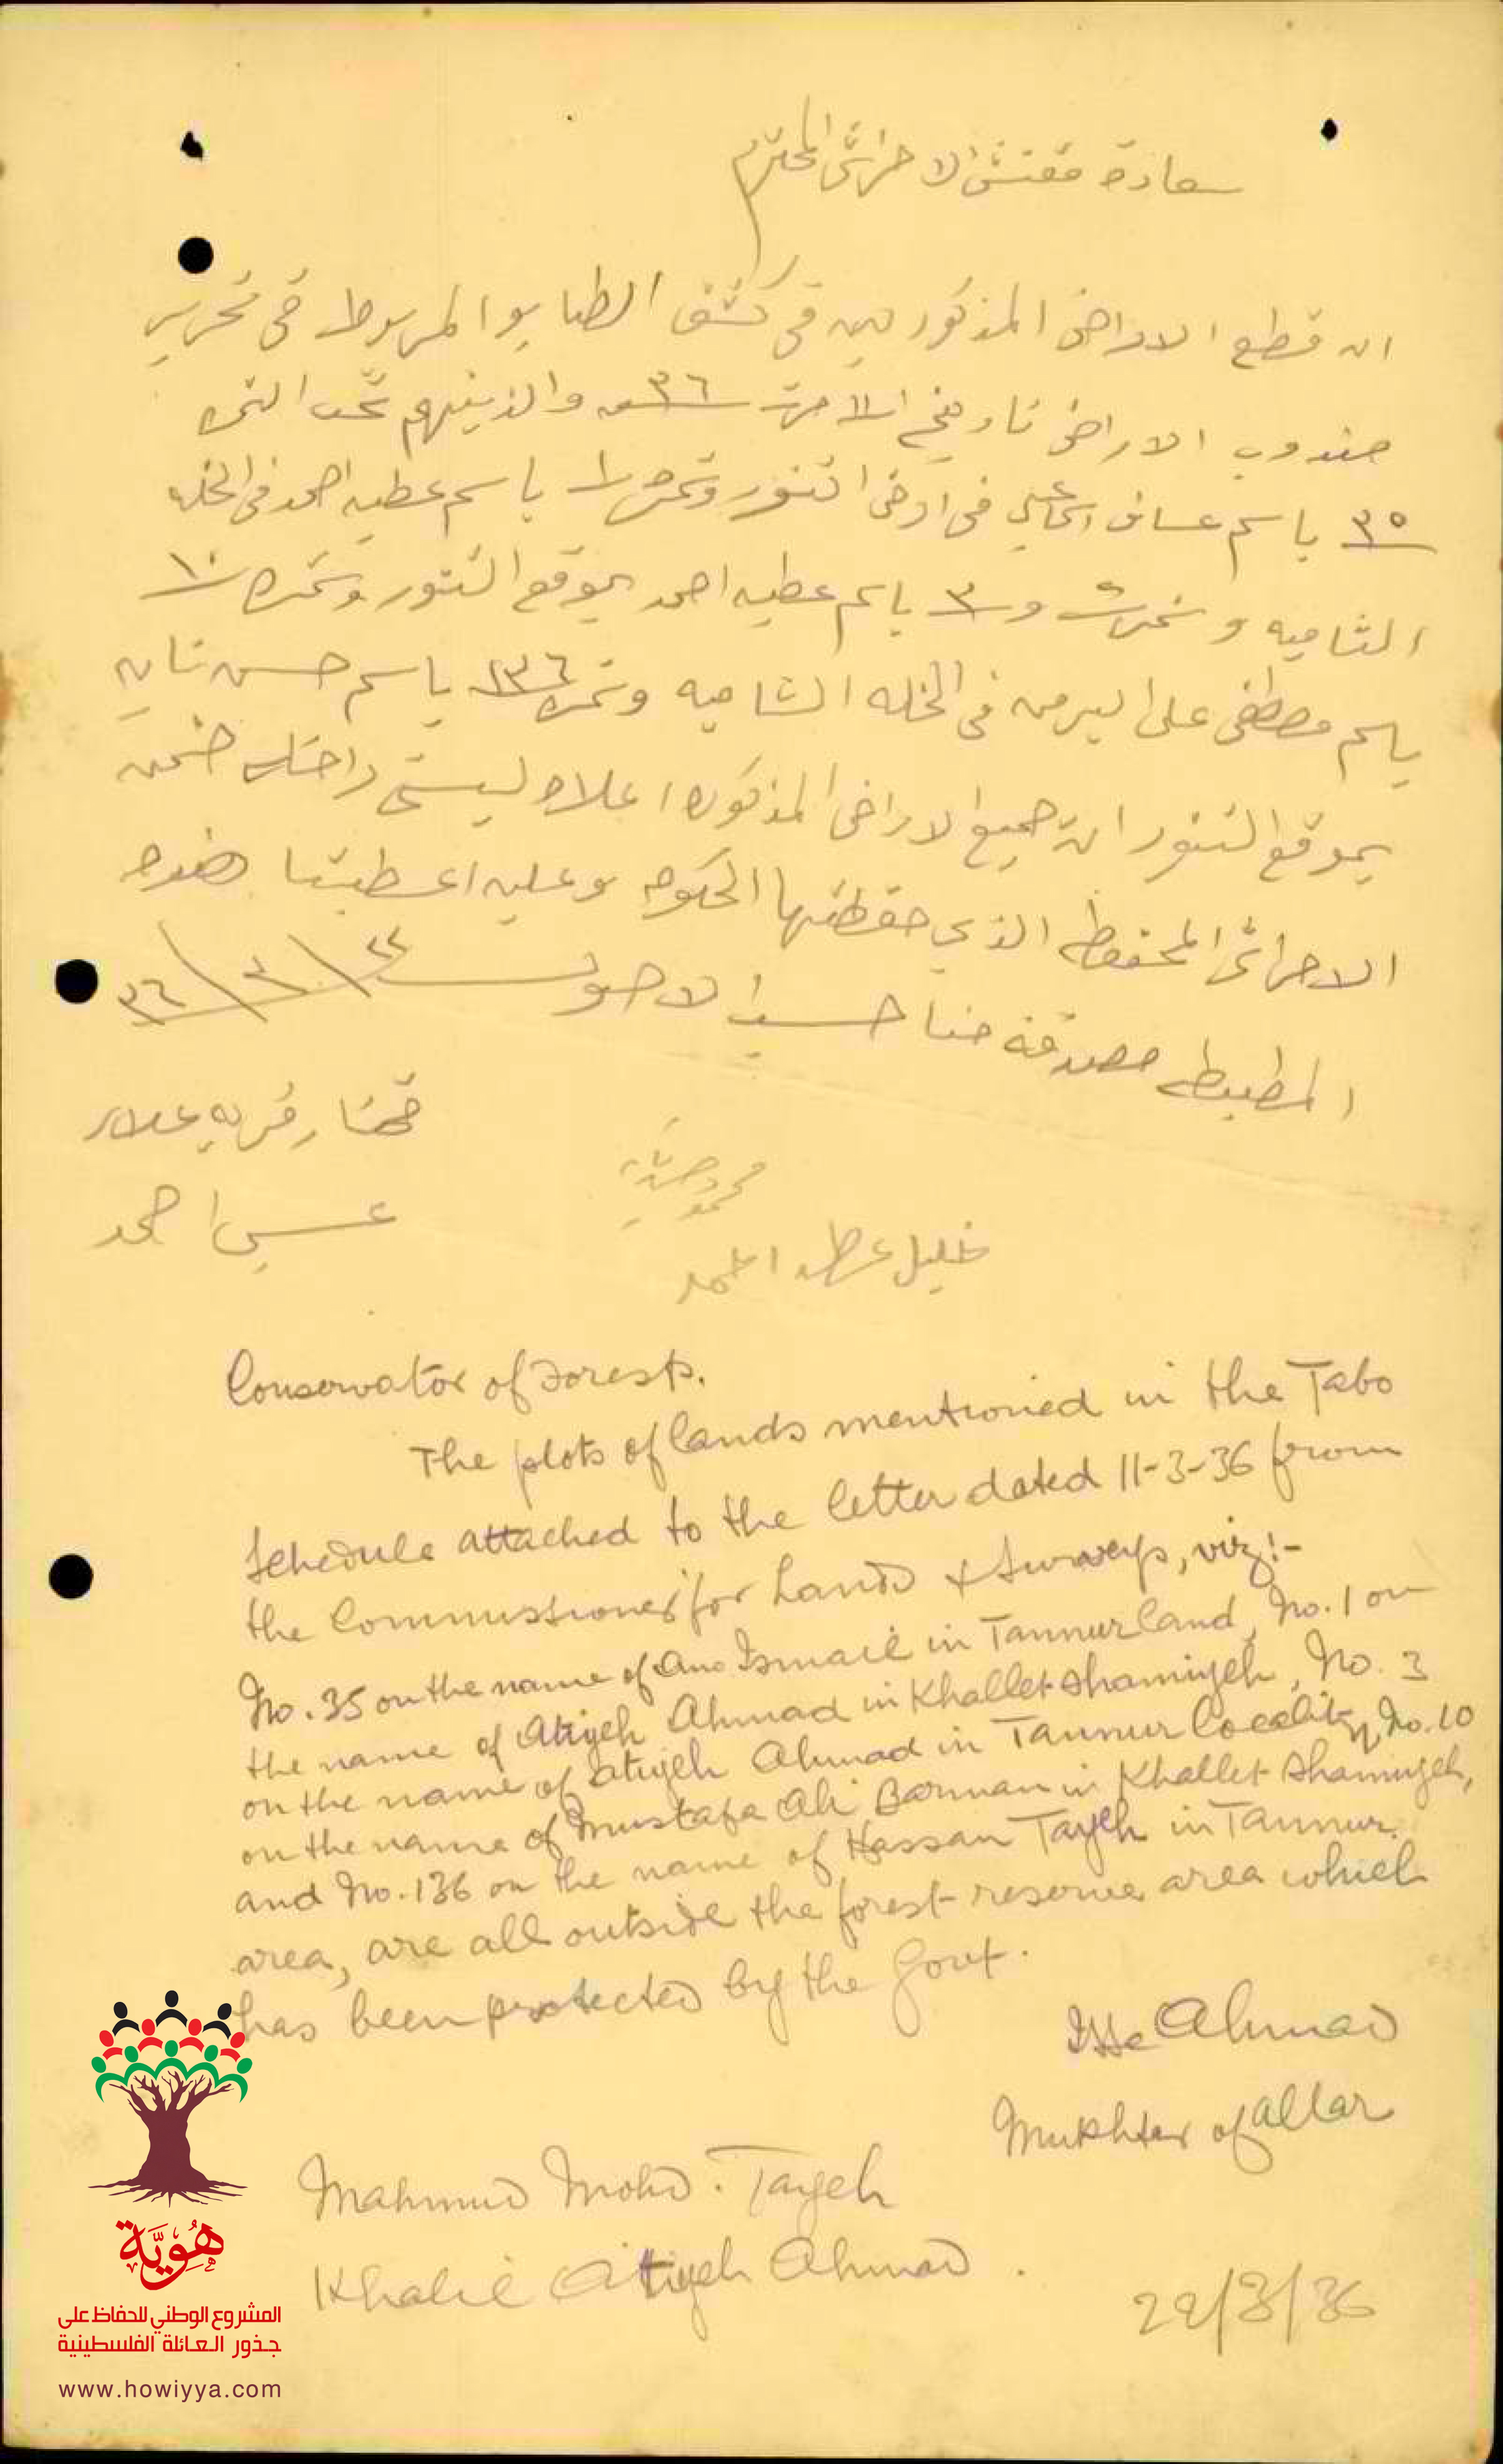 سعادة مفتش الاحراش المحترم
ان قطع الاراضي المذكورين في كشف الطابو المربوط في تحرير
مندوب الاراضي تاريخ ٣٦ والذينهم تحت النمره
٣٥ باسم عساف اسماعيل في ارض التنور ونمره ١ باسم عطيه احمد في الخله
الشاميه ونمرة و ٣ باسم عطيه احمد بموقع التنور ونمره ١٠
باسم مصطفى على البرمن في الخله الشاميه ونمره ١٣٦ باسم حسن تايه
بموقع التنور ان جميع الاراضي المذكوره اعلاه ليست داخله ضمن
الاحراش المحفوظه الذي حفظتها الحكومه وعليه اعطيتنا هذه
المضبطه مصدقه منا حسب الاصول ٢٢/٣/٣٦
مختار قريه علار
عيسى احمد
محمود محمد تايه
خليل عطيه احمد
Conservator of Forests.
The plots of lands mentioned in the Tabo
Schedule attached to the letter dated 11-3-36 from
the Commissioner for Lands & Surveys, viz:-
No. 35 on the name of Ismail in Tannur land, No. 1 on
the name of Atiyeh Ahmad in Khallet Shamiyeh, No. 3
on the name of Atiyeh Ahmad in Tannur locality, No. 10
on the name of Mustafa Ali Barman in Khallet Shamiyeh,
and No. 136 on the name of Hassan Tayeh in Tannur
area, are all outside the forest reserve area which
has been protected by the Govt.
Issa Ahmad
Mukhtar of Allar
Mahmud Mohd. Tayeh
Khalil Atiyeh Ahmad.
22/3/36
هُويَّة
المشروع الوطني للحفاظ على
جذور العائلة الفلسطينية
www.howiyya.com